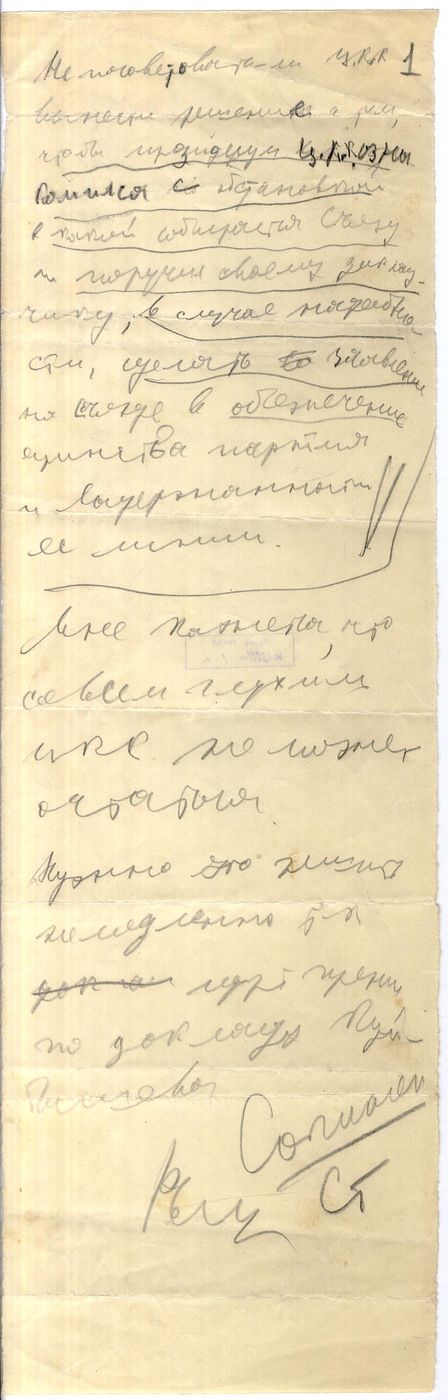 Не посоветовать-ли Ц.К.К 1
вынести решение о том,
чтобы президиум Ц.К.К. озна
комился с обстановкой
в какой собирается Съезд
и поручил своему доклад
чику, в случае надобно
сти, сделать заявление
на съезде в обеспечение
единства партии
и выдержанности
ее линии.
Мне кажется, что
совсем глухим
ЦКК не может
остаться.
Нужно это решить
немедленно т.к
идут прения
по докладу Куй-
бышева
Согласен
Ст